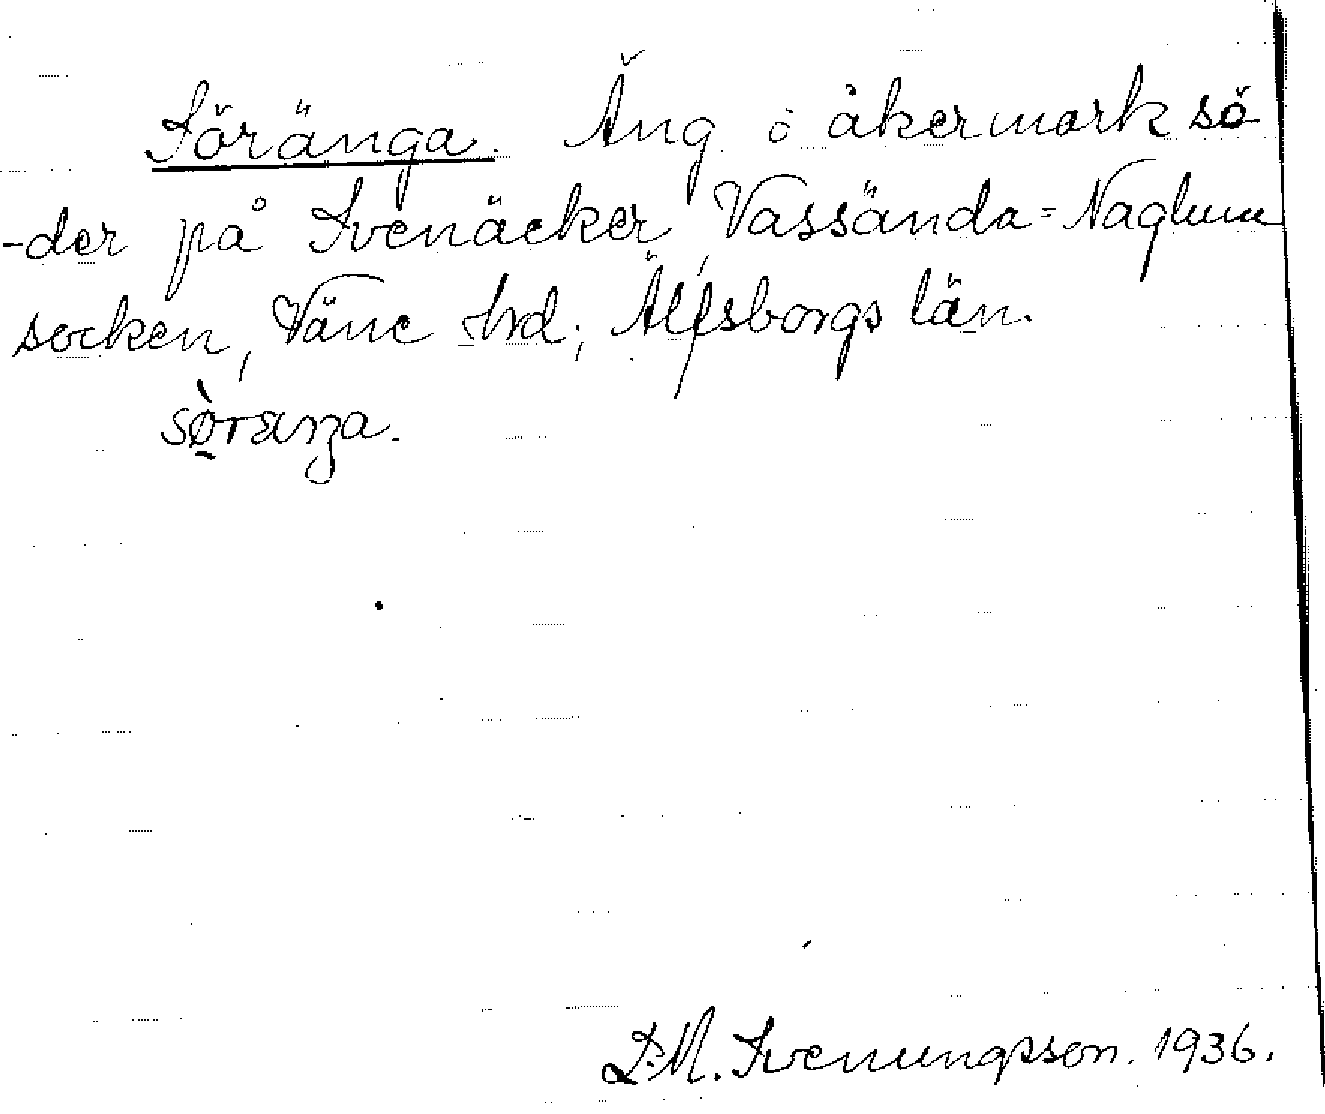 Söränga. Äng o åkermark sö
-der på Svenäcker, Vassända-Naglum
socken, Väne hrd; Älfsborgs län.
søræŋa.
D.M. Svenungsson. 1936.